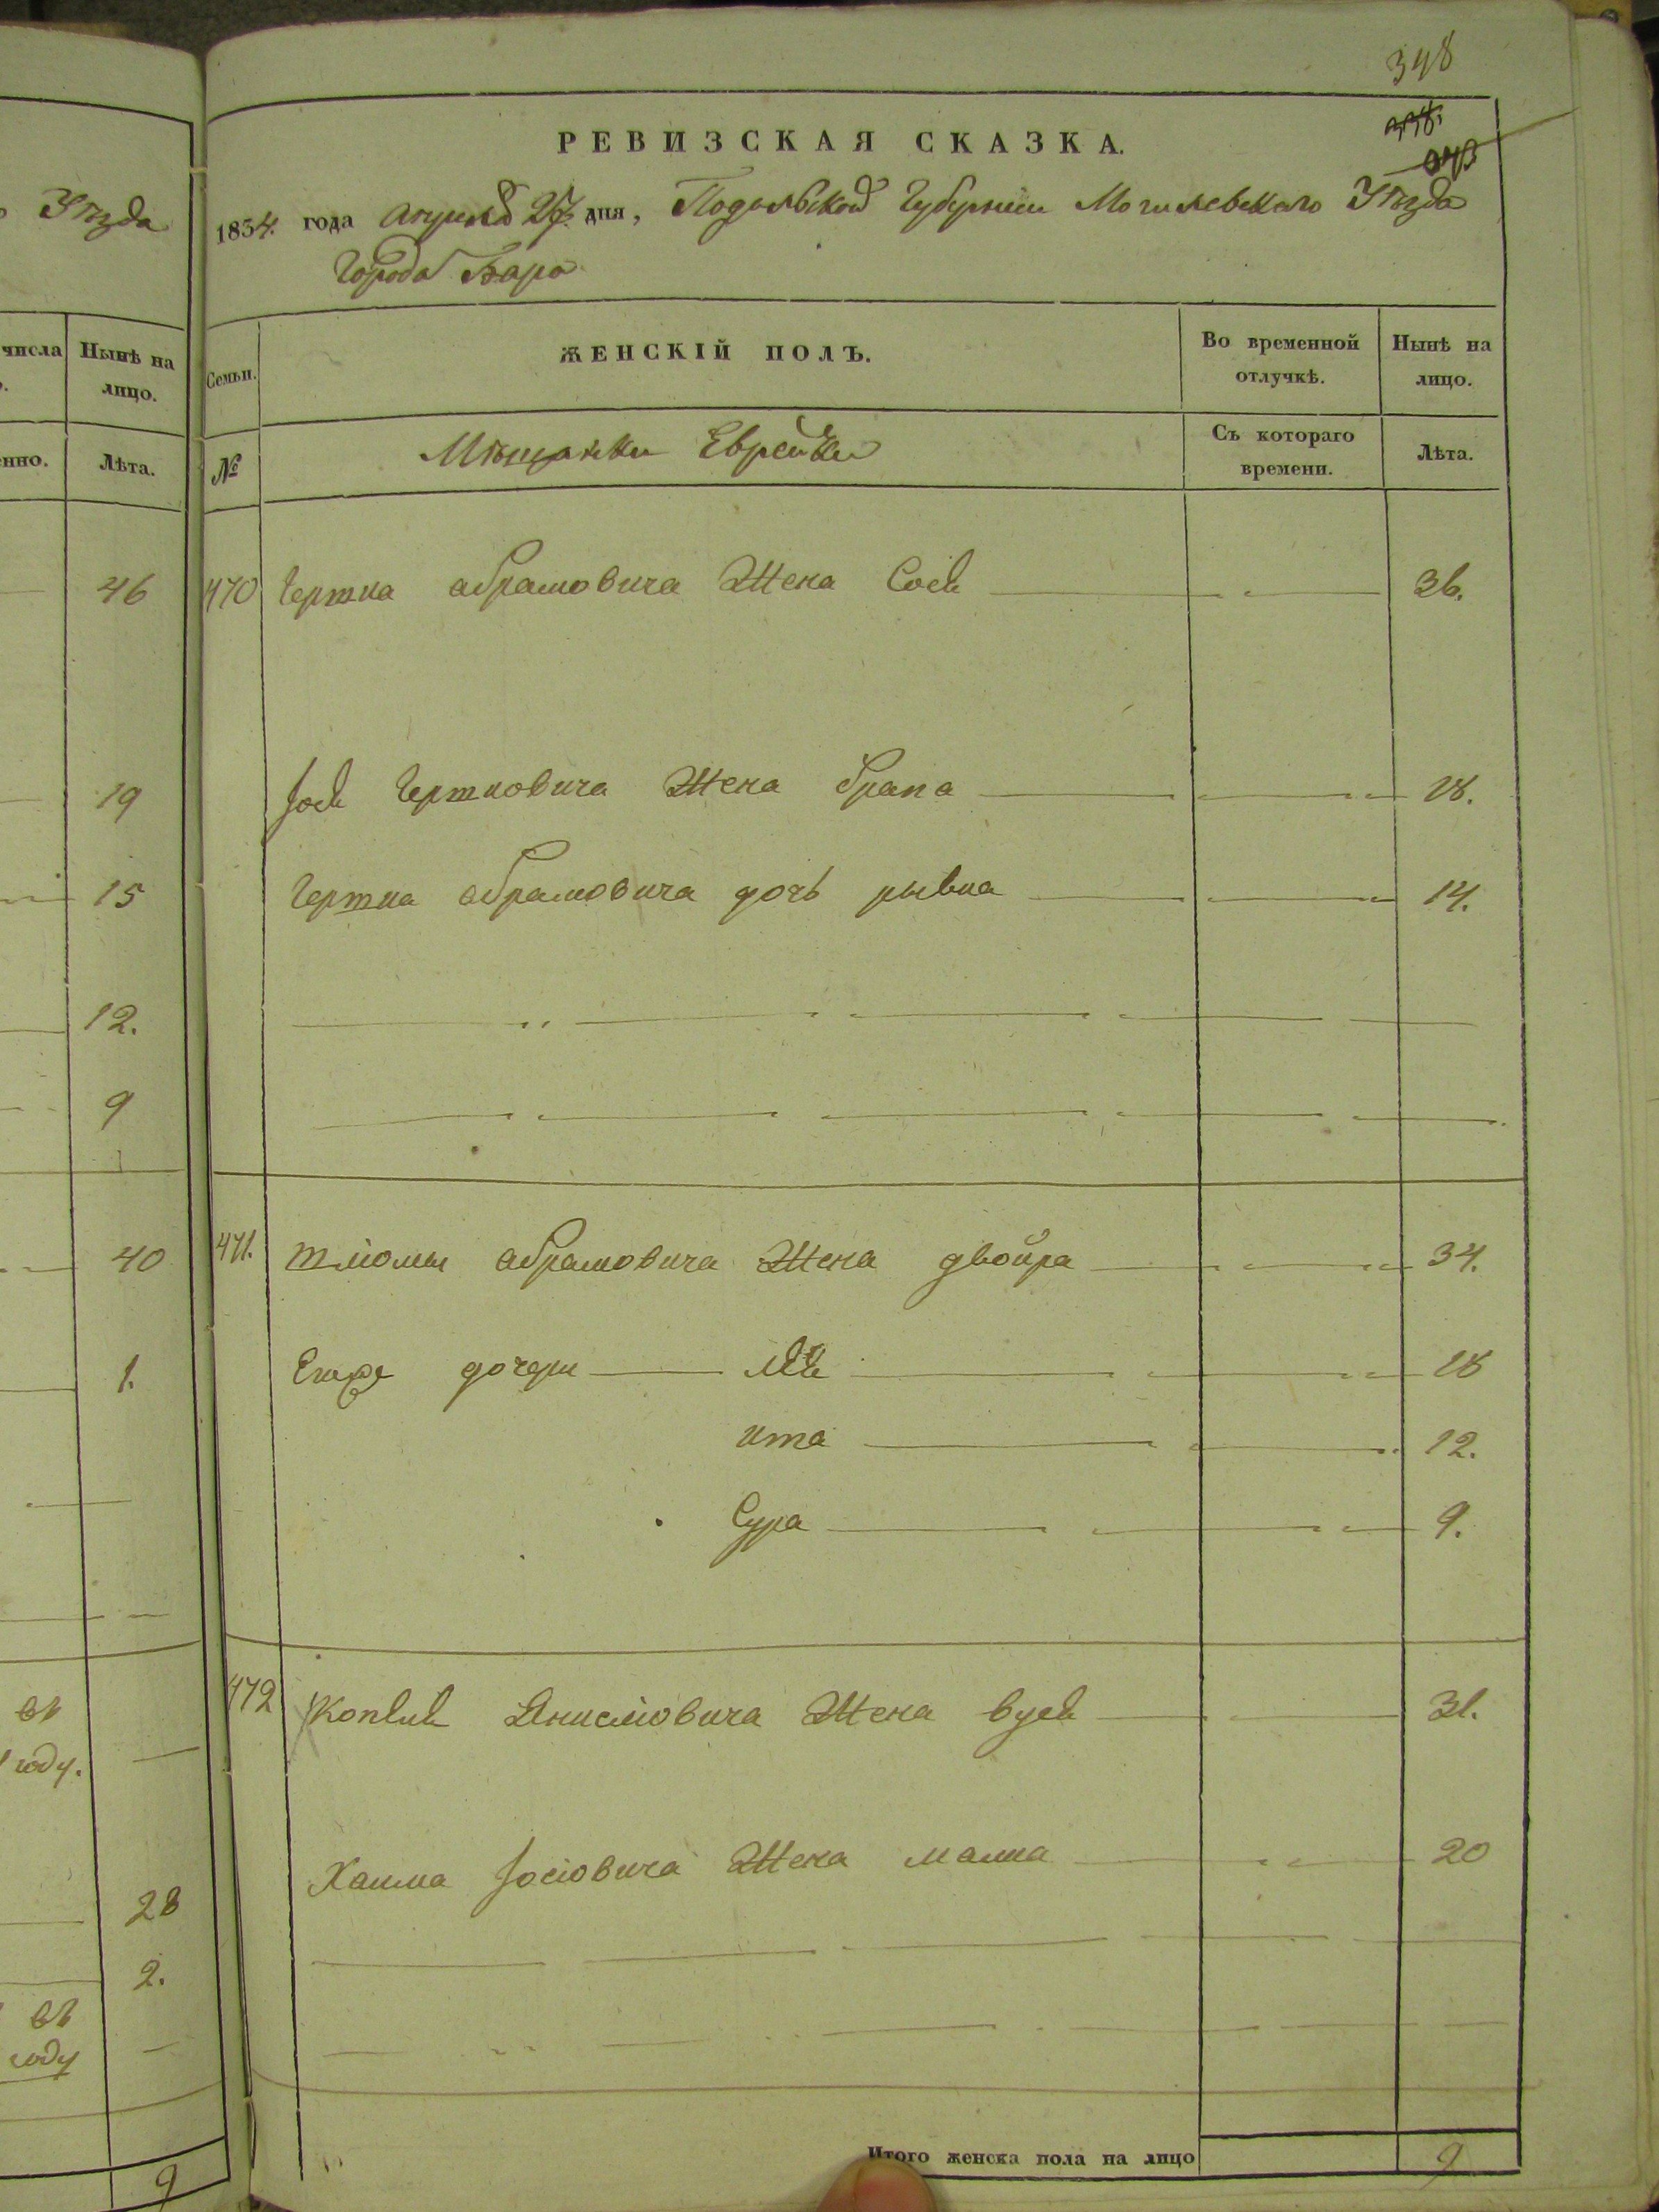 348
РЕВИЗСКАЯ СКАЗКА.
1854. года апреля 27. дня, Подольской Губернии Могилевского Уѣзда
Города Бара
Уѣзда
числа
Нынѣ на лицо.
Лѣта.
46
19
15
12.
9
40
1.
въ
году.
28
2.
въ
году
9
Семьи.
ЖЕНСКІЙ ПОЛЪ.
Во временной отлучкѣ.
Нынѣ на лицо.
№
Мѣщанки Еврейки
Съ котораго времени.
Лѣта.
470 Гершка абрамовича Жена Сося 36.
Іося Гершковича Жена 18.
Гершка абрамовича дочь рывка 14.
471. абрамовича Жена двойра 34.
Егоже дочери 18
ита 12.
Сура 9.
472 Жена 31.
Хаима Іосіовича Жена малка 20
Итого женска пола на лицо 9